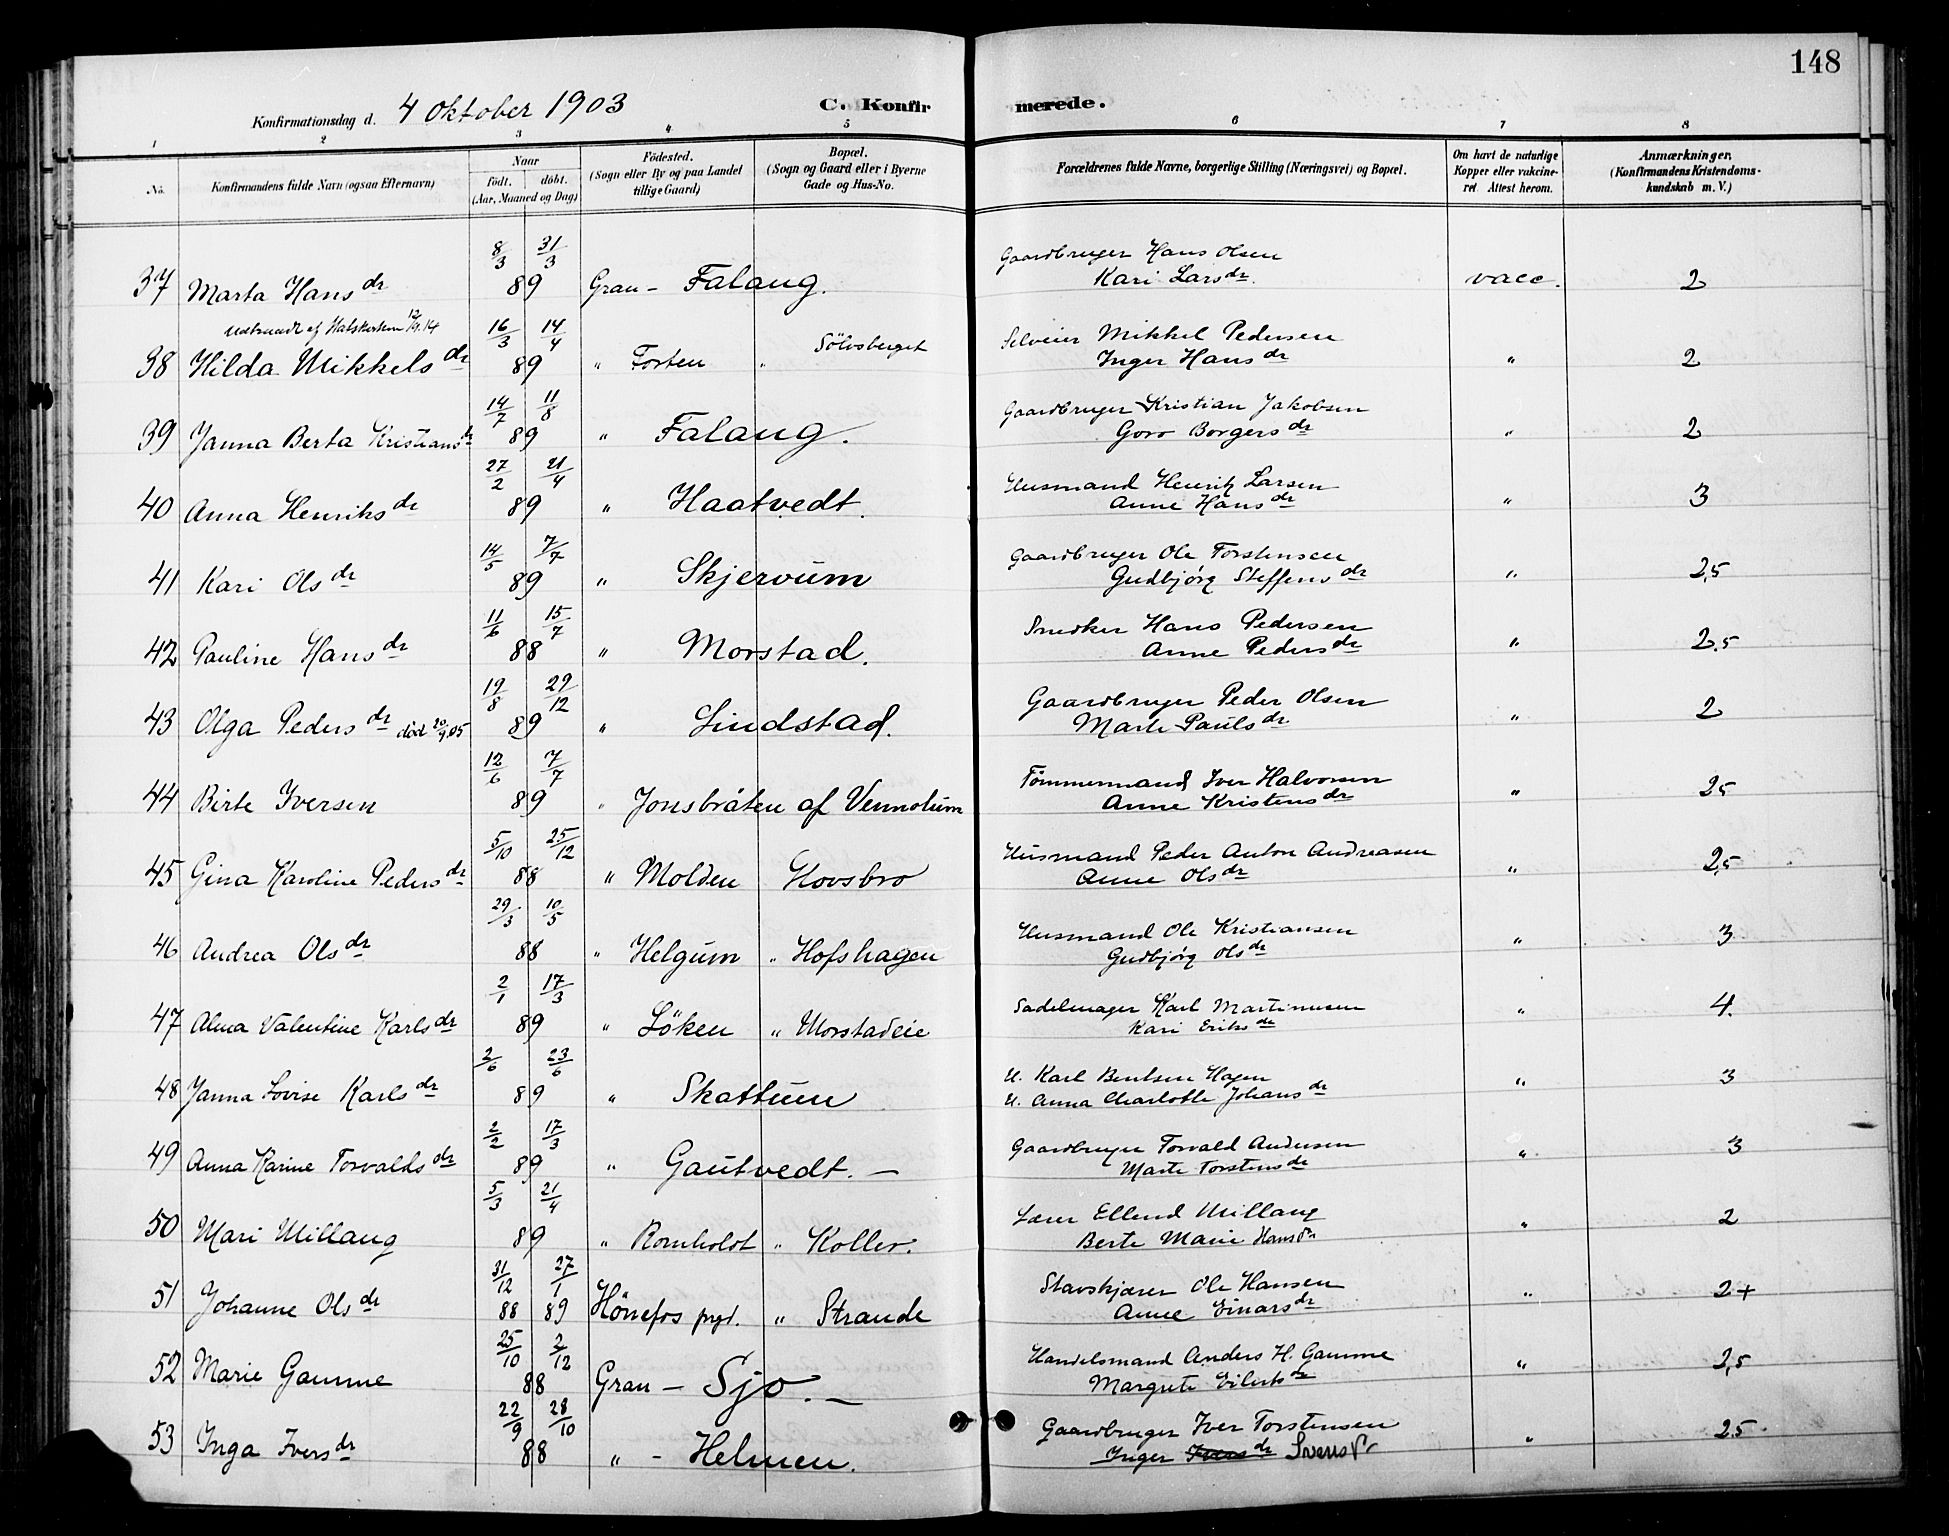 148
Konfirmationsdag d. 4 Oktober 1903 C. Konfirmerede.
1 2 3 4 5 6 7 8
No. Konfirmandens fulde Navn (ogsaa Efternavn) Naar födt. döbt. (Aar, Maaned og Dag) Födested. (Sogn eller By og paa Landet tillige Gaard) Bopæl. (Sogn og Gaard eller i Byerne Gade og Hus-No. Forældrenes fulde Navne, borgerlige Stilling (Næringsvei) og Bopæl. Om havt de naturlige Kopper eller vakcineret. Attest herom. Anmærkninger. (Konfirmandens Kristendomskundskab m. V.)
37 Marta Hansdr 8/3 31/3 89 Gran - Falang. Gaardbruger Hans Olsen Kari Larsdr. vacc. 2
Udtraadt af Statskirken 12/9.14
38 Hilda Mikkelsdr 16/3 14/4 89 " Torten " Sölvsberget Selveier Mikkel Pedersen Inger Hansdr " 2
39 Janna Berta Kristiansdr 14/7 11/8 89 " Falang. Gaardbruger Kristian Jakobsen Goro Borgersdr " 2
40 Anna Henriksdr 27/2 21/4 89 " Haatvedt. Husmand Henrik Larsen Anne Hansdr " 3
41 Kari Olsdr 14/5 7/7 89 " Skjervum Gaardbruger Ole Torstensen Gudbjörg Steffensdr " 2,5
42 Pauline Hansdr 11/6 15/7 88 " Morstad. Snedker Hans Pedersen Anne Pedersdr " 2.5
43 Olga Pedersdr död 20/9.05 19/8 29/12 89 " Lindstad. Gaardbruger Peder Olsen Marte Paulsdr " 2
44 Birte Iversen 12/6 7/7 89 " Jonsbråten af Vennolum Tömmermand Iver Halvorsen Anne Kristensdr " 25
45 Gina Karoline Pedersdr 5/10 25/12 88 " Molden Hovsbro Husmand Peder Anton Andreasen Anne Olsdr " 2,5
46 Andrea Olsdr 29/3 10/5 88 " Helgum " Hofshagen Husmand Ole Kristiansen Gudbjörg Olsdr " 3
47 Alma Valentine Karlsdr 2/1 17/3 89 " Löken " Morstadeie Sadelmager Karl Martinusen Kari Eriksdr " 4.
48 Janna Lovise Karlsdr 2/6 23/6 89 " Skattum U. Karl Bentsen Hagen U. Anna Charlotte Johansdr " 3
49 Anna Karine Torvaldsdr 2/2 17/3 89 " Gautvedt. - Gaardbruger Torvald Andersen Marte Torstensdr " 3
50 Mari Millang 5/3 21/4 89 " Romholdt " Koller. Lærer Ellend Millang Berte Marie Hansdr " 2
51 Johanne Olsdr 31/12 88 27/1 89 Hönefos prgd. " Strande Stavskjærer Ole Hansen Anne Einarsdr " 2+
52 Marie Gamme 25/10 2/12 88 Gran - Sjo. - Handelsmand Anders H. Gamme Margrete Eilertsdr " 2,5
53 Inga Iversdr 22/9 28/10 88 " - Helmen. Gaardbruger Iver Torstensen Inger Iversdr Svensdr " 2.5